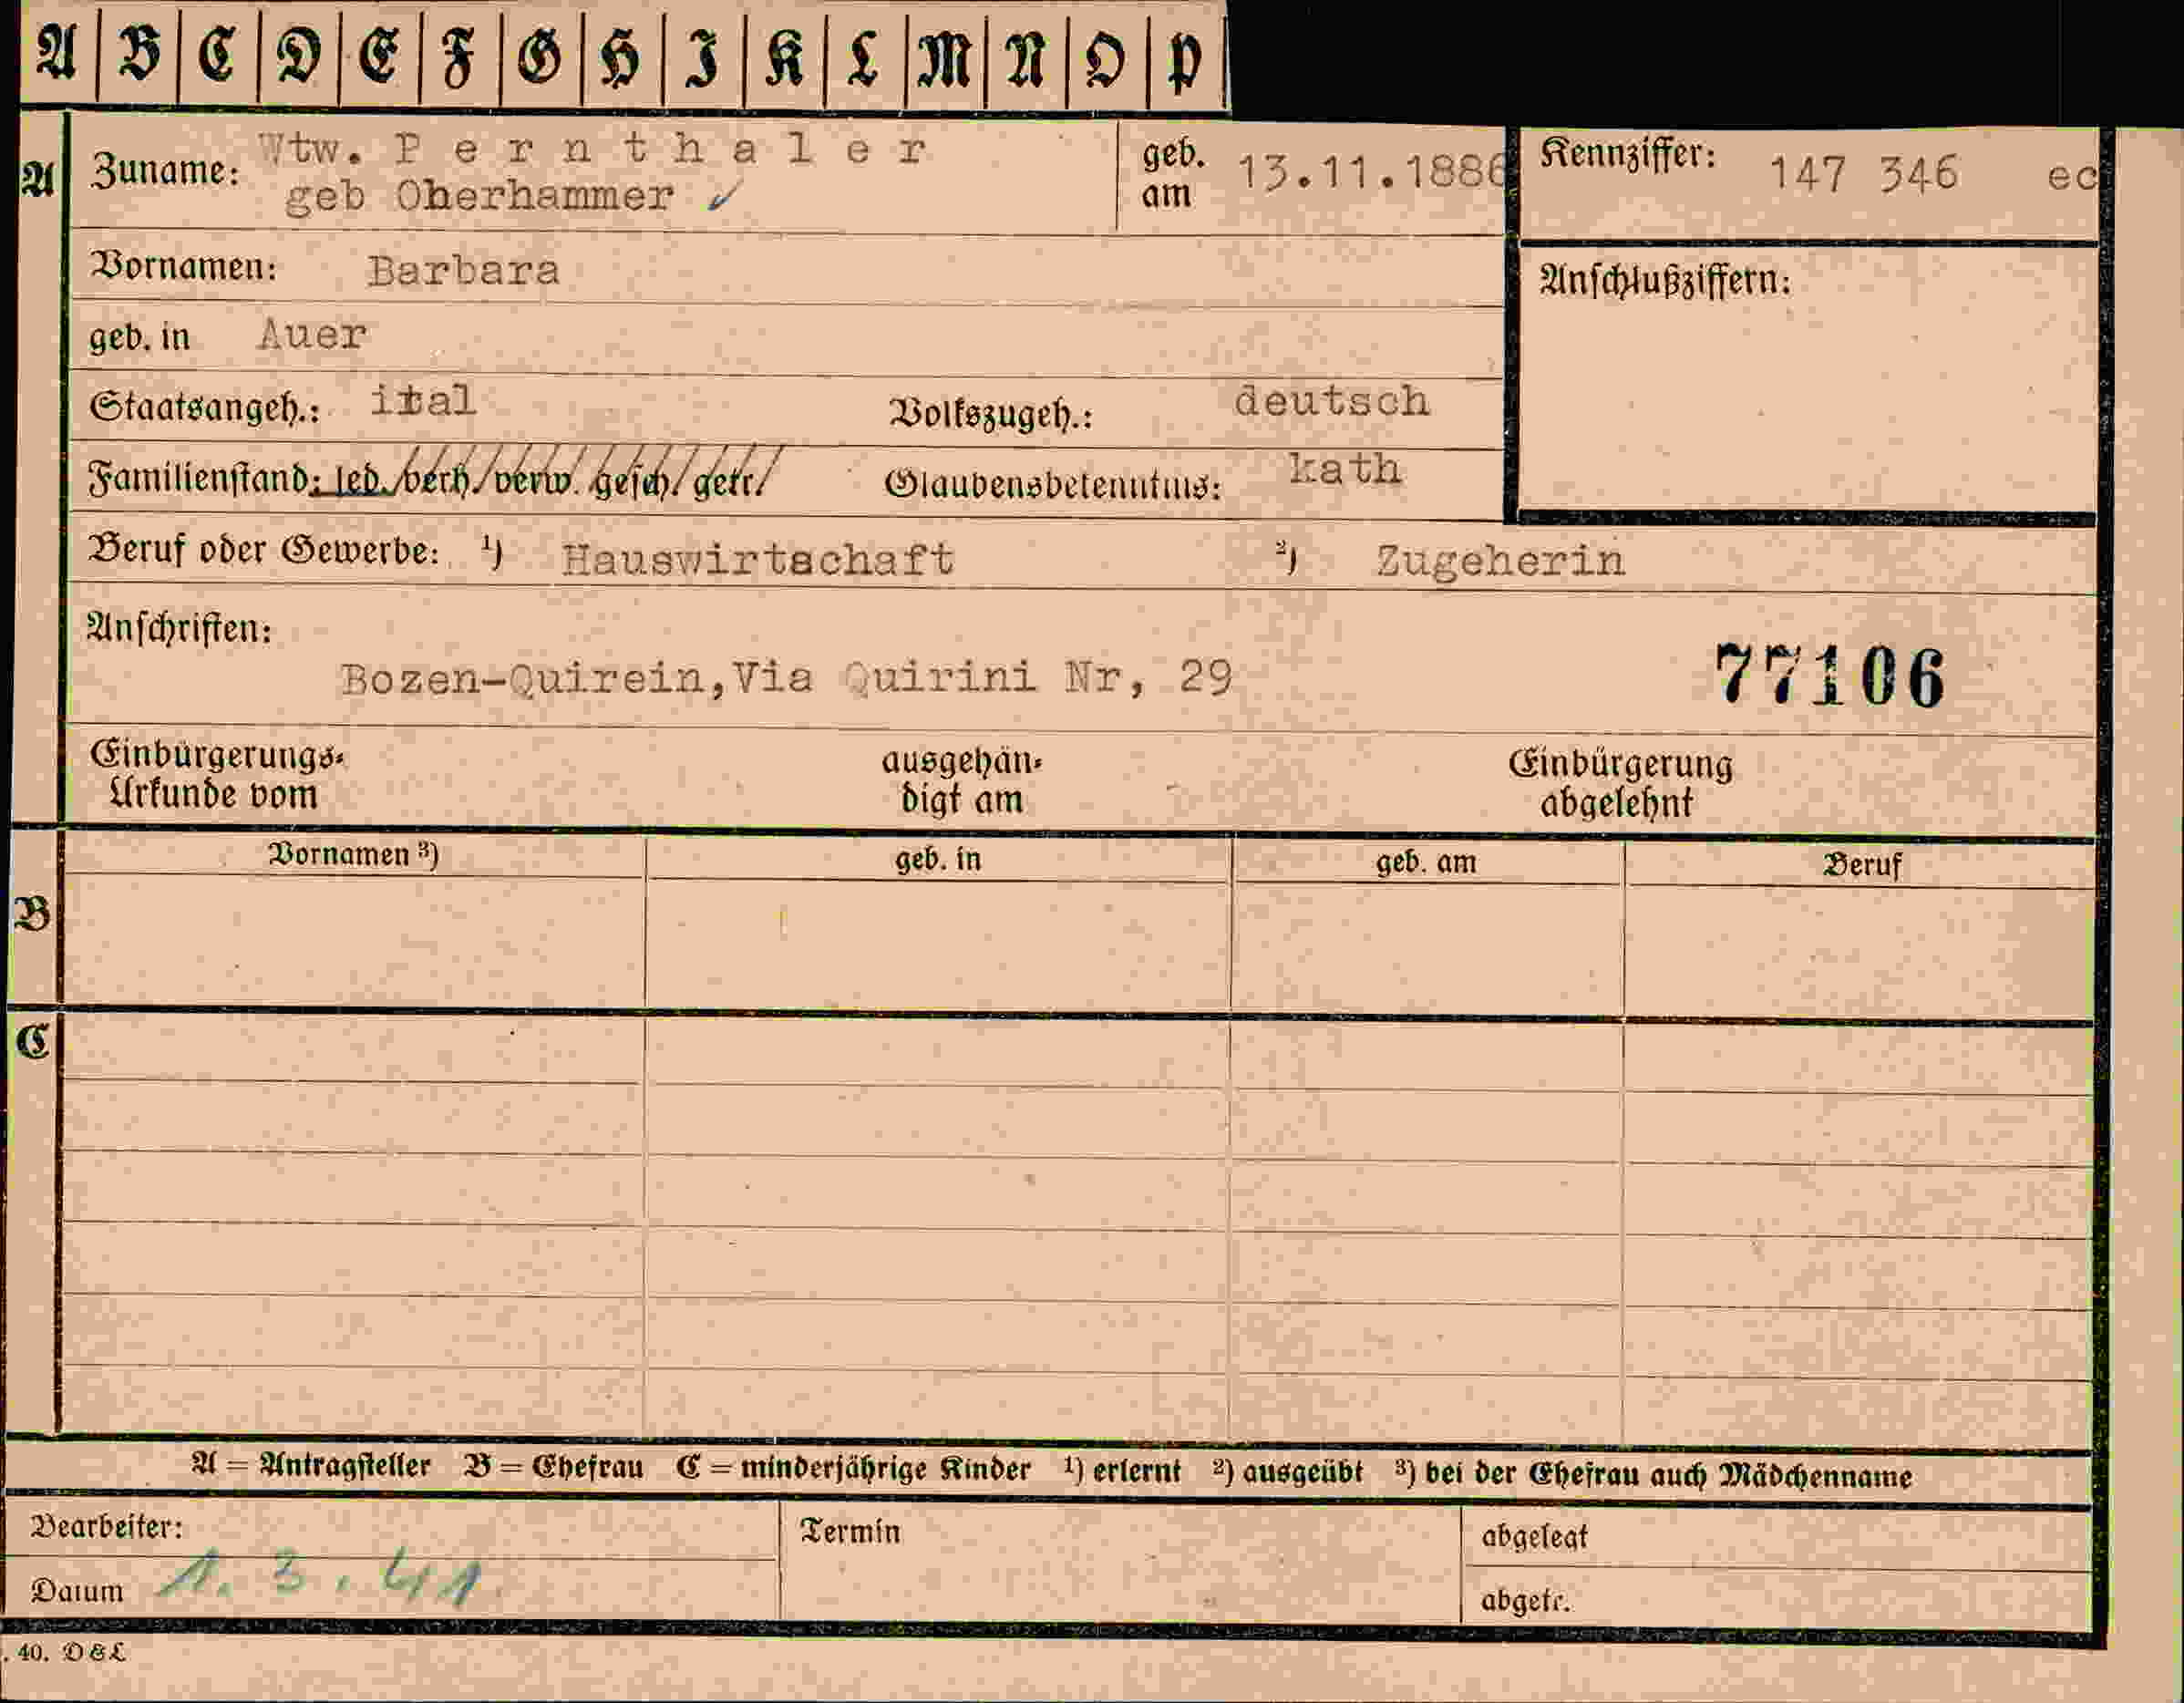 A B C D E F G H I K L M N O P
A
Zuname: Wtw. P e r n t h a l e r
geb Oberhammer ✓
geb. am 13.11.1886
Kennziffer: 147 346 ec
Vornamen: Barbara
Anschlußziffern:
geb. in Auer
Staatsangeh.: ital Volkszugeh.: deutsch
Familienstand: led./verh./verw. gesch/getr/ Glaubensbekenntnis: kath
Beruf oder Gewerbe: ¹) Hauswirtschaft ²) Zugeherin
Anschriften:
Bozen-Quirein,Via Quirini Nr, 29
77106
Einbürgerungs-
Urkunde vom
ausgehän-
digt am
Einbürgerung
abgelehnt
B
Vornamen ³) geb. in geb. am Beruf
C
A = Antragsteller B = Ehefrau C = minderjährige Kinder ¹) erlernt ²) ausgeübt ³) bei der Ehefrau auch Mädchenname
Bearbeiter: Termin abgelegt
Datum 1. 3. 41 abgetr.
. 40. D&L